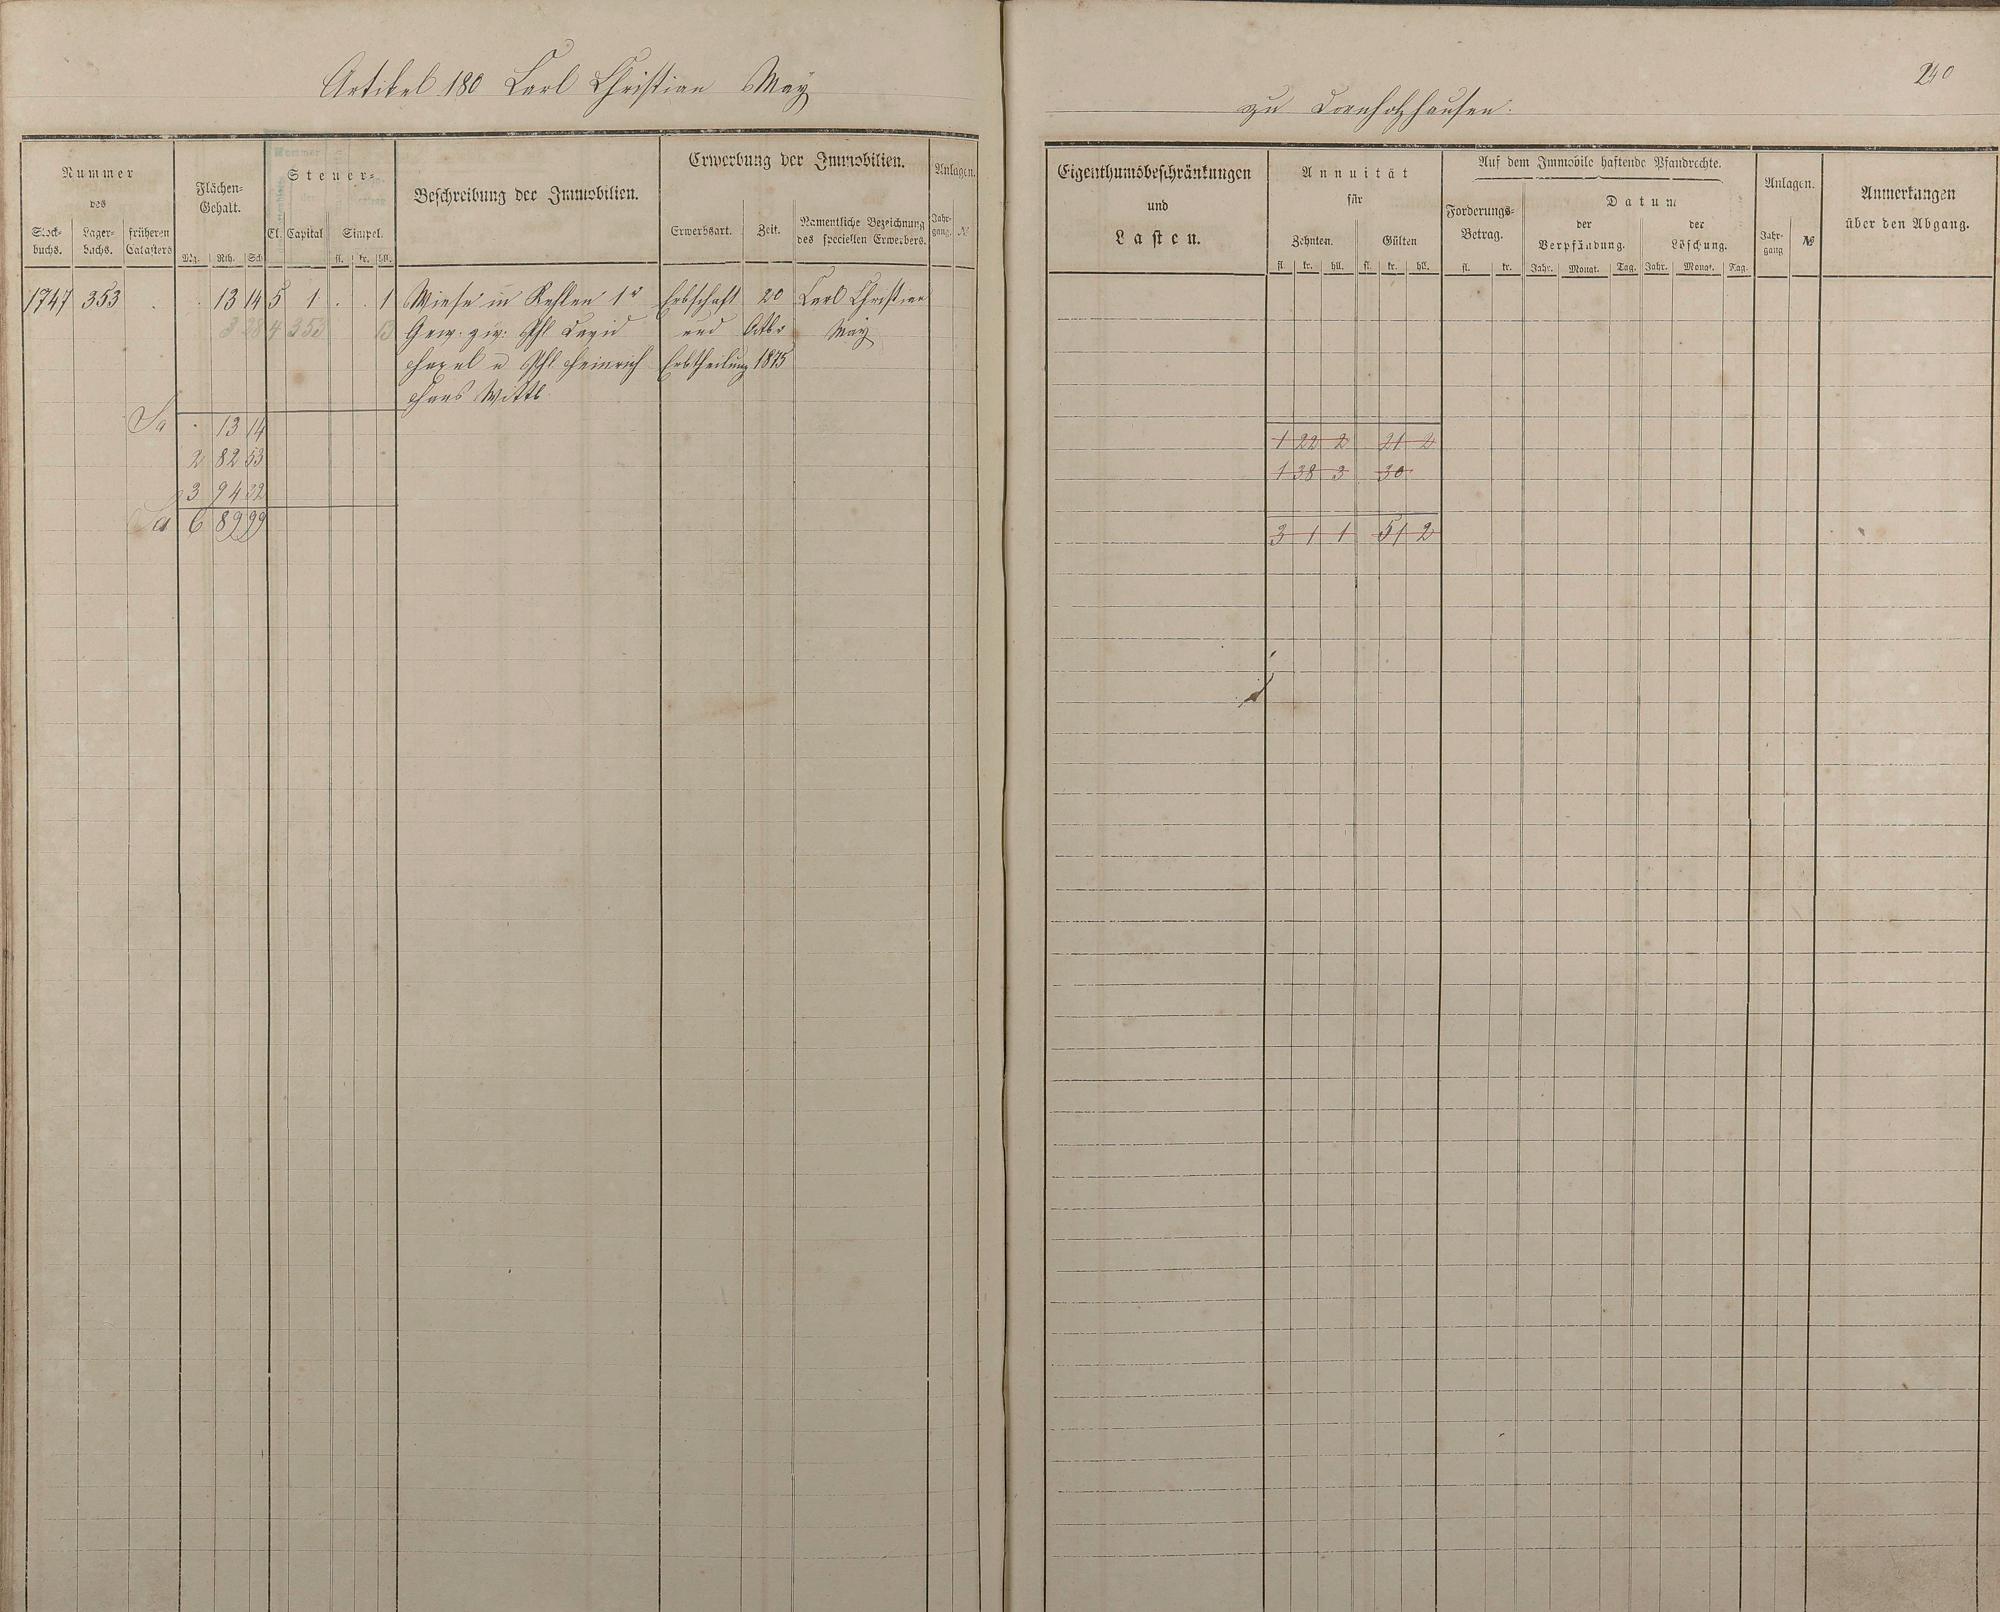 Artikel 180 Carl Christian May
Nummer
des
Stock-
buchs.
Lager-
buchs.
früheren
Catasters
Flächen-
Gehalt.
Mg. Rth. Sch
Steuer-
Cl. Capital Simpel.
fl. kr. hll.
Beschreibung der Immobilien.
Erwerbung der Immobilien.
Erwerbsart. Zeit.
Namentliche Bezeichnung
des speciellen Erwerbers.
Anlagen.
Jahr-
gang. №
1747 353 . . 13 14 5 1 . . 1 Wiese in Kehlen 1r Erbschaft 20 Carl Christian
3 28 4 353 13 Gew. zw. Phl. David und Octbr May
u Phl. Heinrich Erbtheilung 1875
Wittb.
Sa . 13 14
2 82 53
3 94 32
Sa 6 89 99
240
zu Dornholzhausen.
Eigenthumsbeschränkungen
und
Lasten.
Annuität
für
Zehnten. Gülten
fl. kr. hll. fl. kr. hll.
Auf dem Immobile haftende Pfandrechte.
Forderungs-
Betrag.
fl. kr.
Datum
der
Verpfändung.
der
Löschung.
Jahr. Monat. Tag. Jahr. Monat. Tag.
Anlagen.
Jahr-
gang №
Anmerkungen
über den Abgang.
1 22 2 21 2
1 38 3 30
3 1 1 51 2